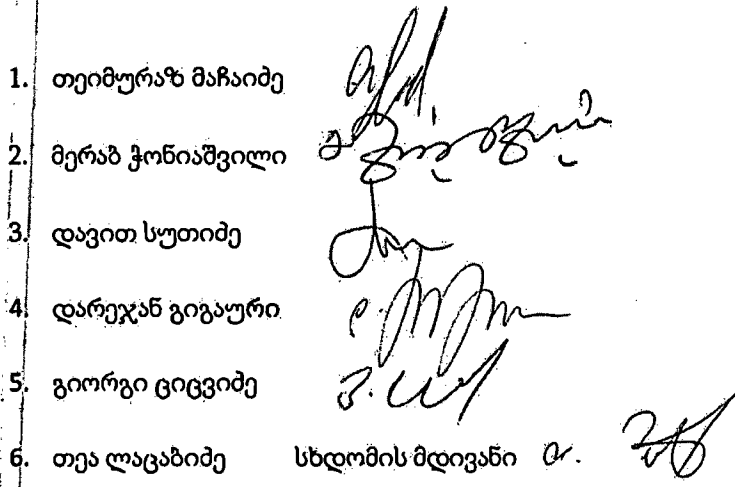 1. თეიმურაზ მაჩაიძე
2. მერაბ ჭონიაშვილი
3. დავით სუთიძე
4. დარეჯან გიგაური
5. გიორგი ციცვიძე
6. თეა ლაცაბიძე სხდომის მდივანი